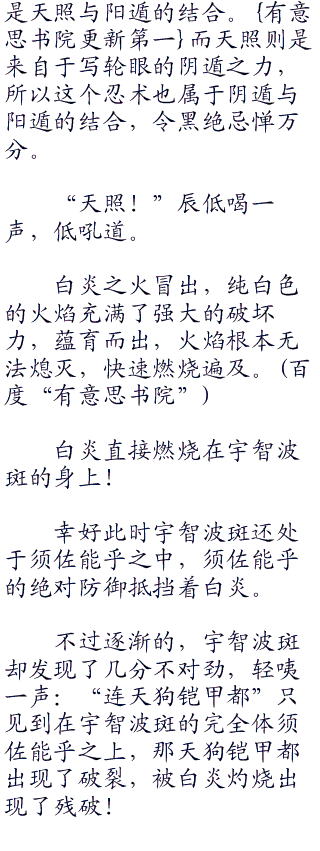 是天照与阳遁的结合。{有意
思书院更新第一}而天照则是
来自于写轮眼的阴遁之力，
所以这个忍术也属于阴遁与
阳遁的结合，令黑绝忌惮万
分。
“天照！”辰低喝一
声，低吼道。
白炎之火冒出，纯白色
的火焰充满了强大的破坏
力，蕴育而出，火焰根本无
法熄灭，快速燃烧遍及。(百
度“有意思书院”)
白炎直接燃烧在宇智波
斑的身上！
幸好此时宇智波斑还处
于须佐能乎之中，须佐能乎
的绝对防御抵挡着白炎。
不过逐渐的，宇智波斑
却发现了几分不对劲，轻咦
一声：“连天狗铠甲都”只
见到在宇智波斑的完全体须
佐能乎之上，那天狗铠甲都
出现了破裂，被白炎灼烧出
现了残破！